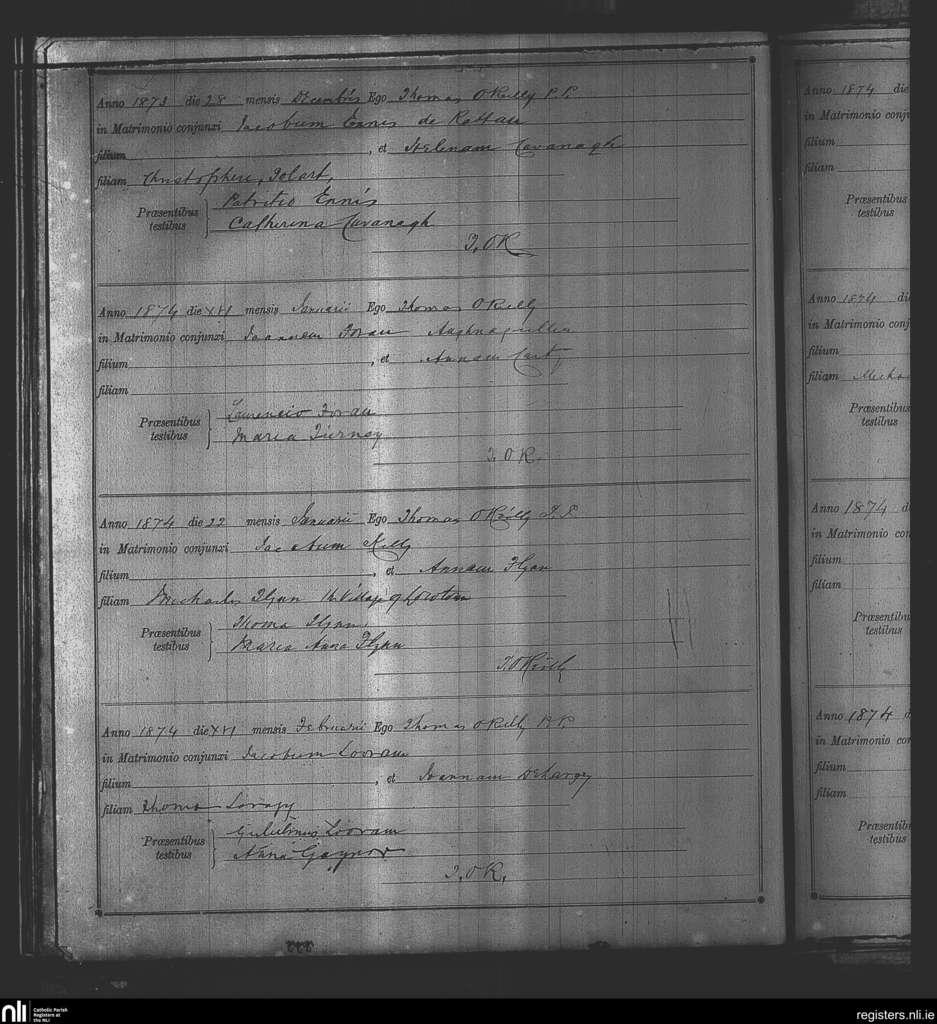 Anno 1873 die 28 mensis Decembris Ego Thomas O Reilly P. P.
in Matrimonio conjunxi Jacobum Ennis de
filium , et Helenam Cavanagh
filiam Christophere,
Præsentibus testibus
Patritio Ennis
Catherina Cavanagh
T. O R
Anno 1874 die XVI mensis Januarii Ego Thomas O Reilly
in Matrimonio conjunxi Joannem Foran
filium , et Annam
filiam
Præsentibus testibus
Laurencio Foran
Maria Tierney
T. O R.
Anno 1874 die 22 mensis Januarii Ego Thomas O Reilly P. P.
in Matrimonio conjunxi Jacobum Kelly
filium , et Annam Flynn
filiam Michaelis Flynn the Village of
Præsentibus testibus
Thoma Flynn
Maria Anna Flynn
T O Reilly
Anno 1874 die XVI mensis Februarii Ego Thomas O Reilly P. P.
in Matrimonio conjunxi Jacobum Looram
filium , et Joannam
filiam Thoma
Præsentibus testibus
Gulielmus Looram
Anna Gaynor
T. O R.
Anno 1874 die
in Matrimonio conj
filium
filiam
Præsentibus
testibus
Anno 1874 di
in Matrimonio conj
filium
filiam
Præsentibus
testibus
Anno 1874 d
in Matrimonio con
filium
filiam
Præsentibu
testibus
Anno 1874 d
in Matrimonio con
filium
filiam
Præsentib
testibus
nli Catholic Parish
Registers at
the NLI
registers.nli.ie